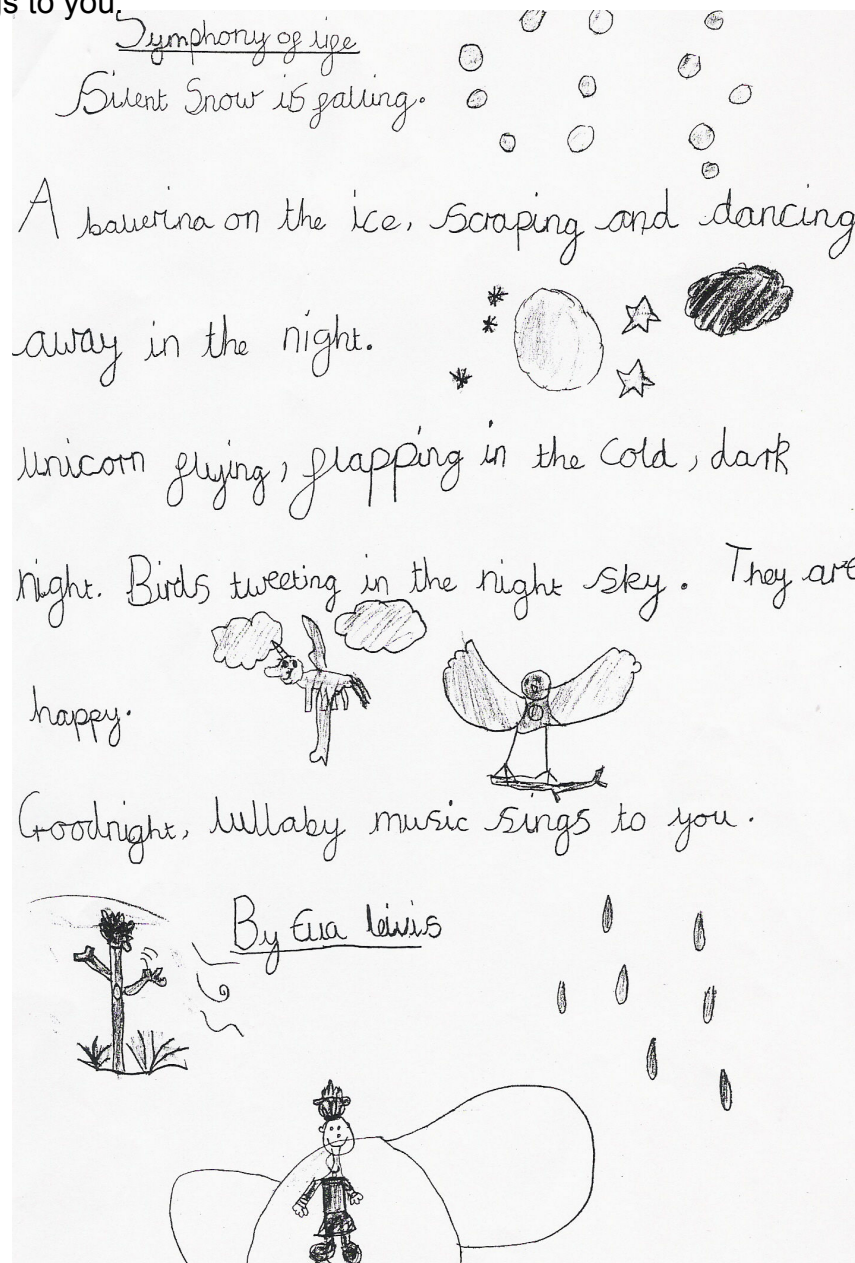 s to you.
Symphony of life
Silent Snow is falling.
A ballerina on the ice, scraping and dancing
away in the night.
Unicorn flying, flapping in the cold, dark
night. Birds tweeting in the night sky. They are
happy.
Goodnight, lullaby music sings to you.
By Eva Lewis